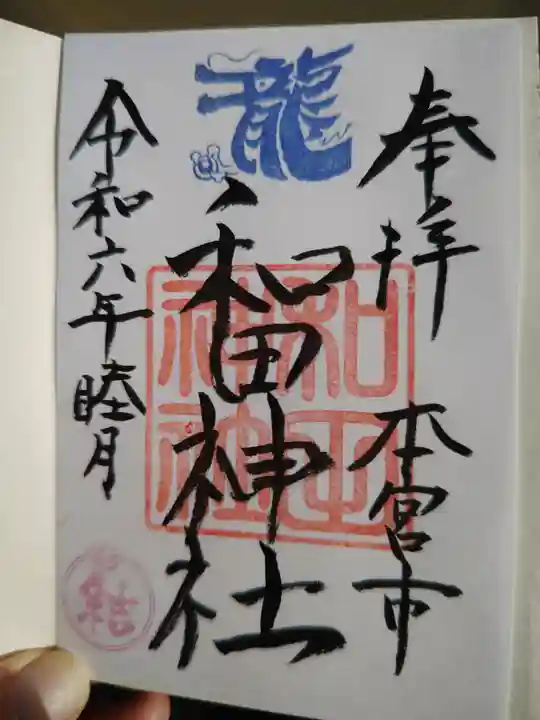 奉拝 本宮市
龍
和田神社
和田
神社
令和六年睦月
結